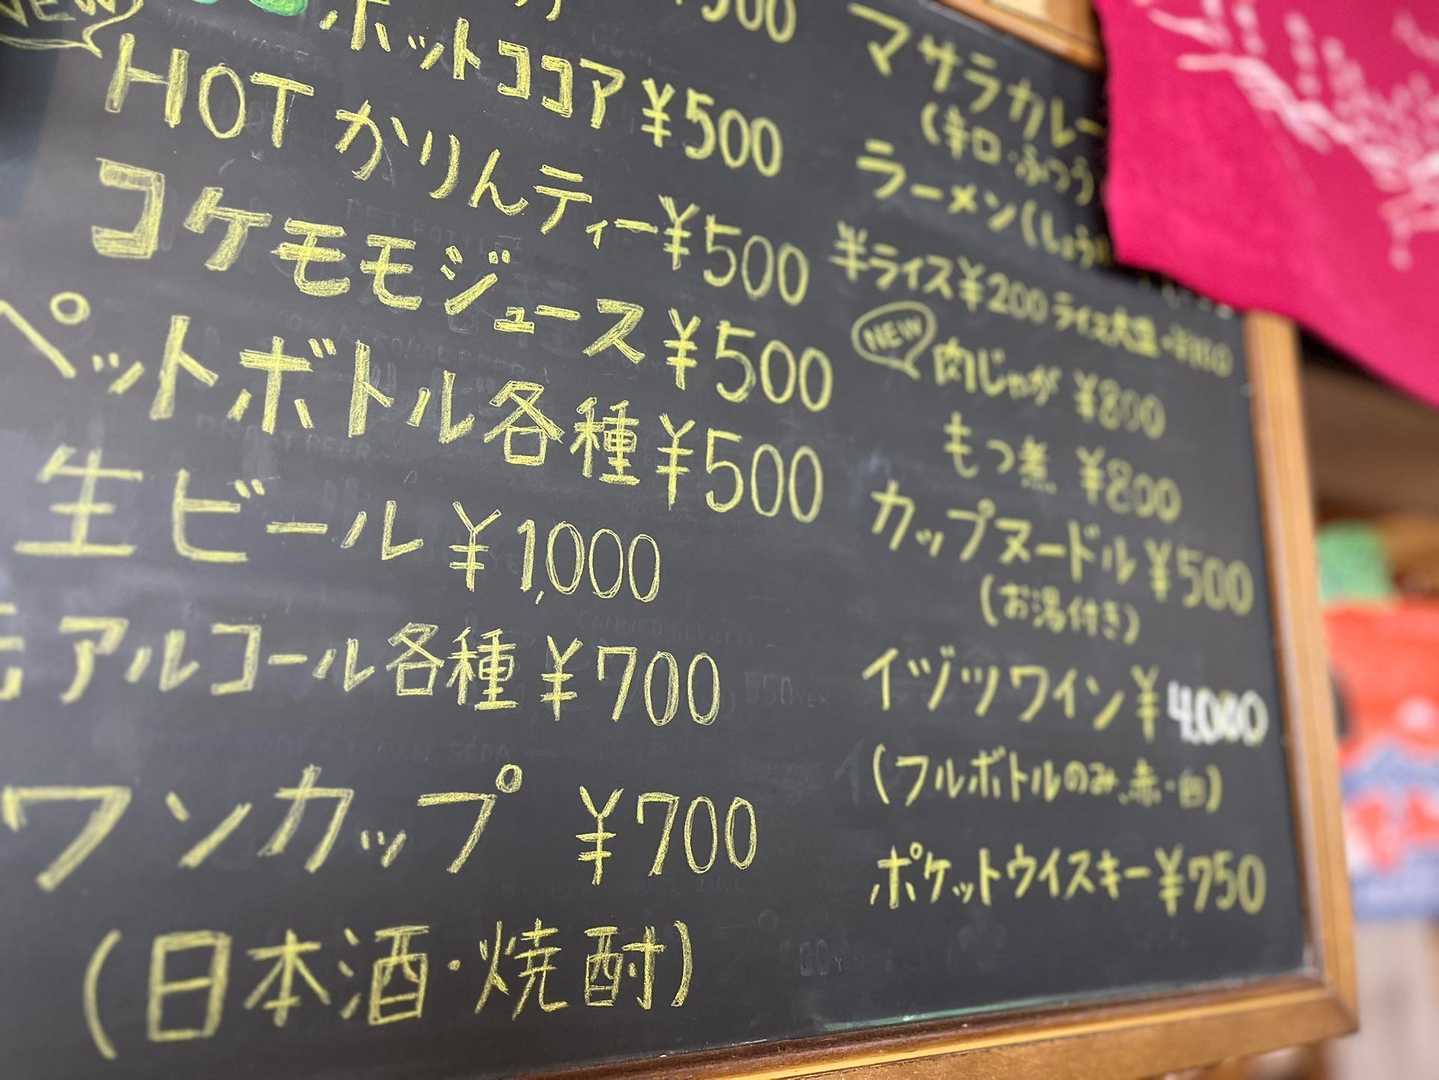 NEW
¥500
ホットココア ¥500
HOT かりんティー ¥500
コケモモジュース ¥500
ペットボトル各種 ¥500
生ビール ¥1,000
アルコール各種 ¥700
ワンカップ ¥700
(日本酒・焼酎)
マサラカレー
(辛口・ふつう
ラーメン(しょうゆ
半ライス ¥200 ライス大盛
NEW 肉じゃが ¥800
もつ煮 ¥800
カップヌードル ¥500
(お湯付き)
イヅツワイン ¥4,000
(フルボトルのみ、赤・白)
ポケットウイスキー ¥750